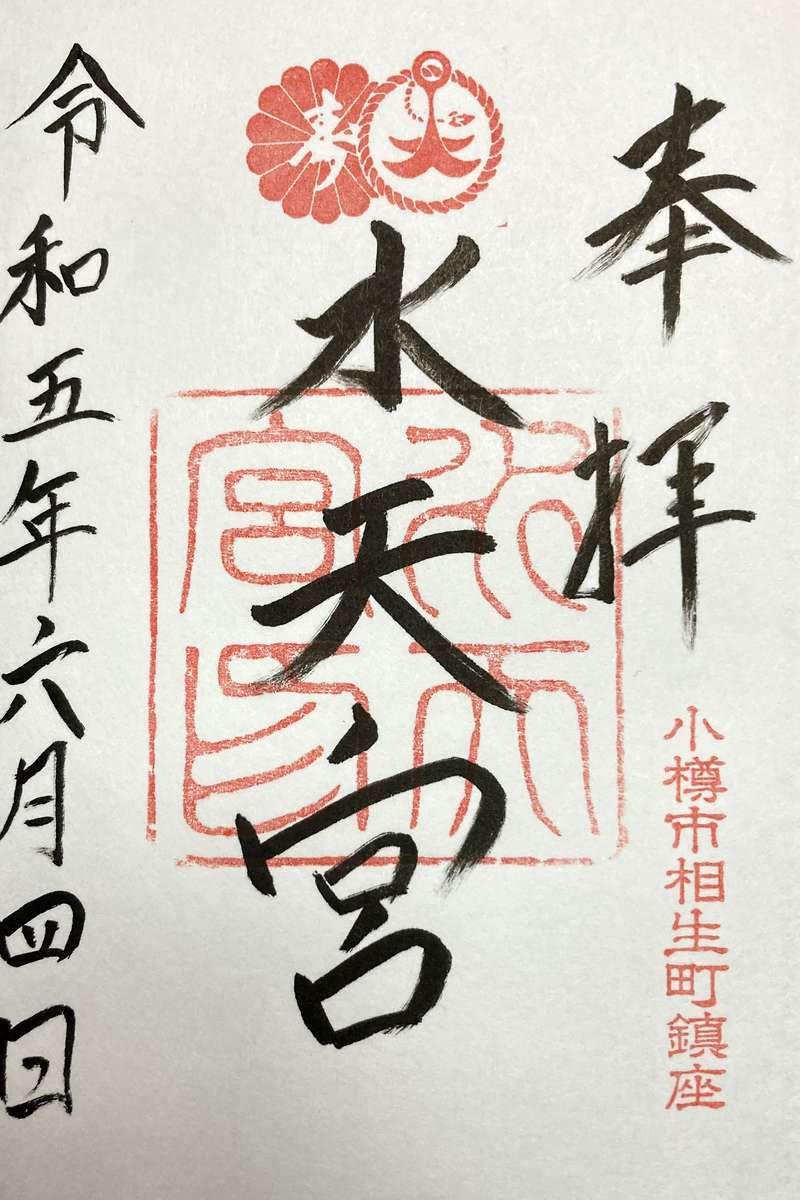 奉拝
小樽市相生町鎮座
水天宮
水天宮印
令和五年六月四日